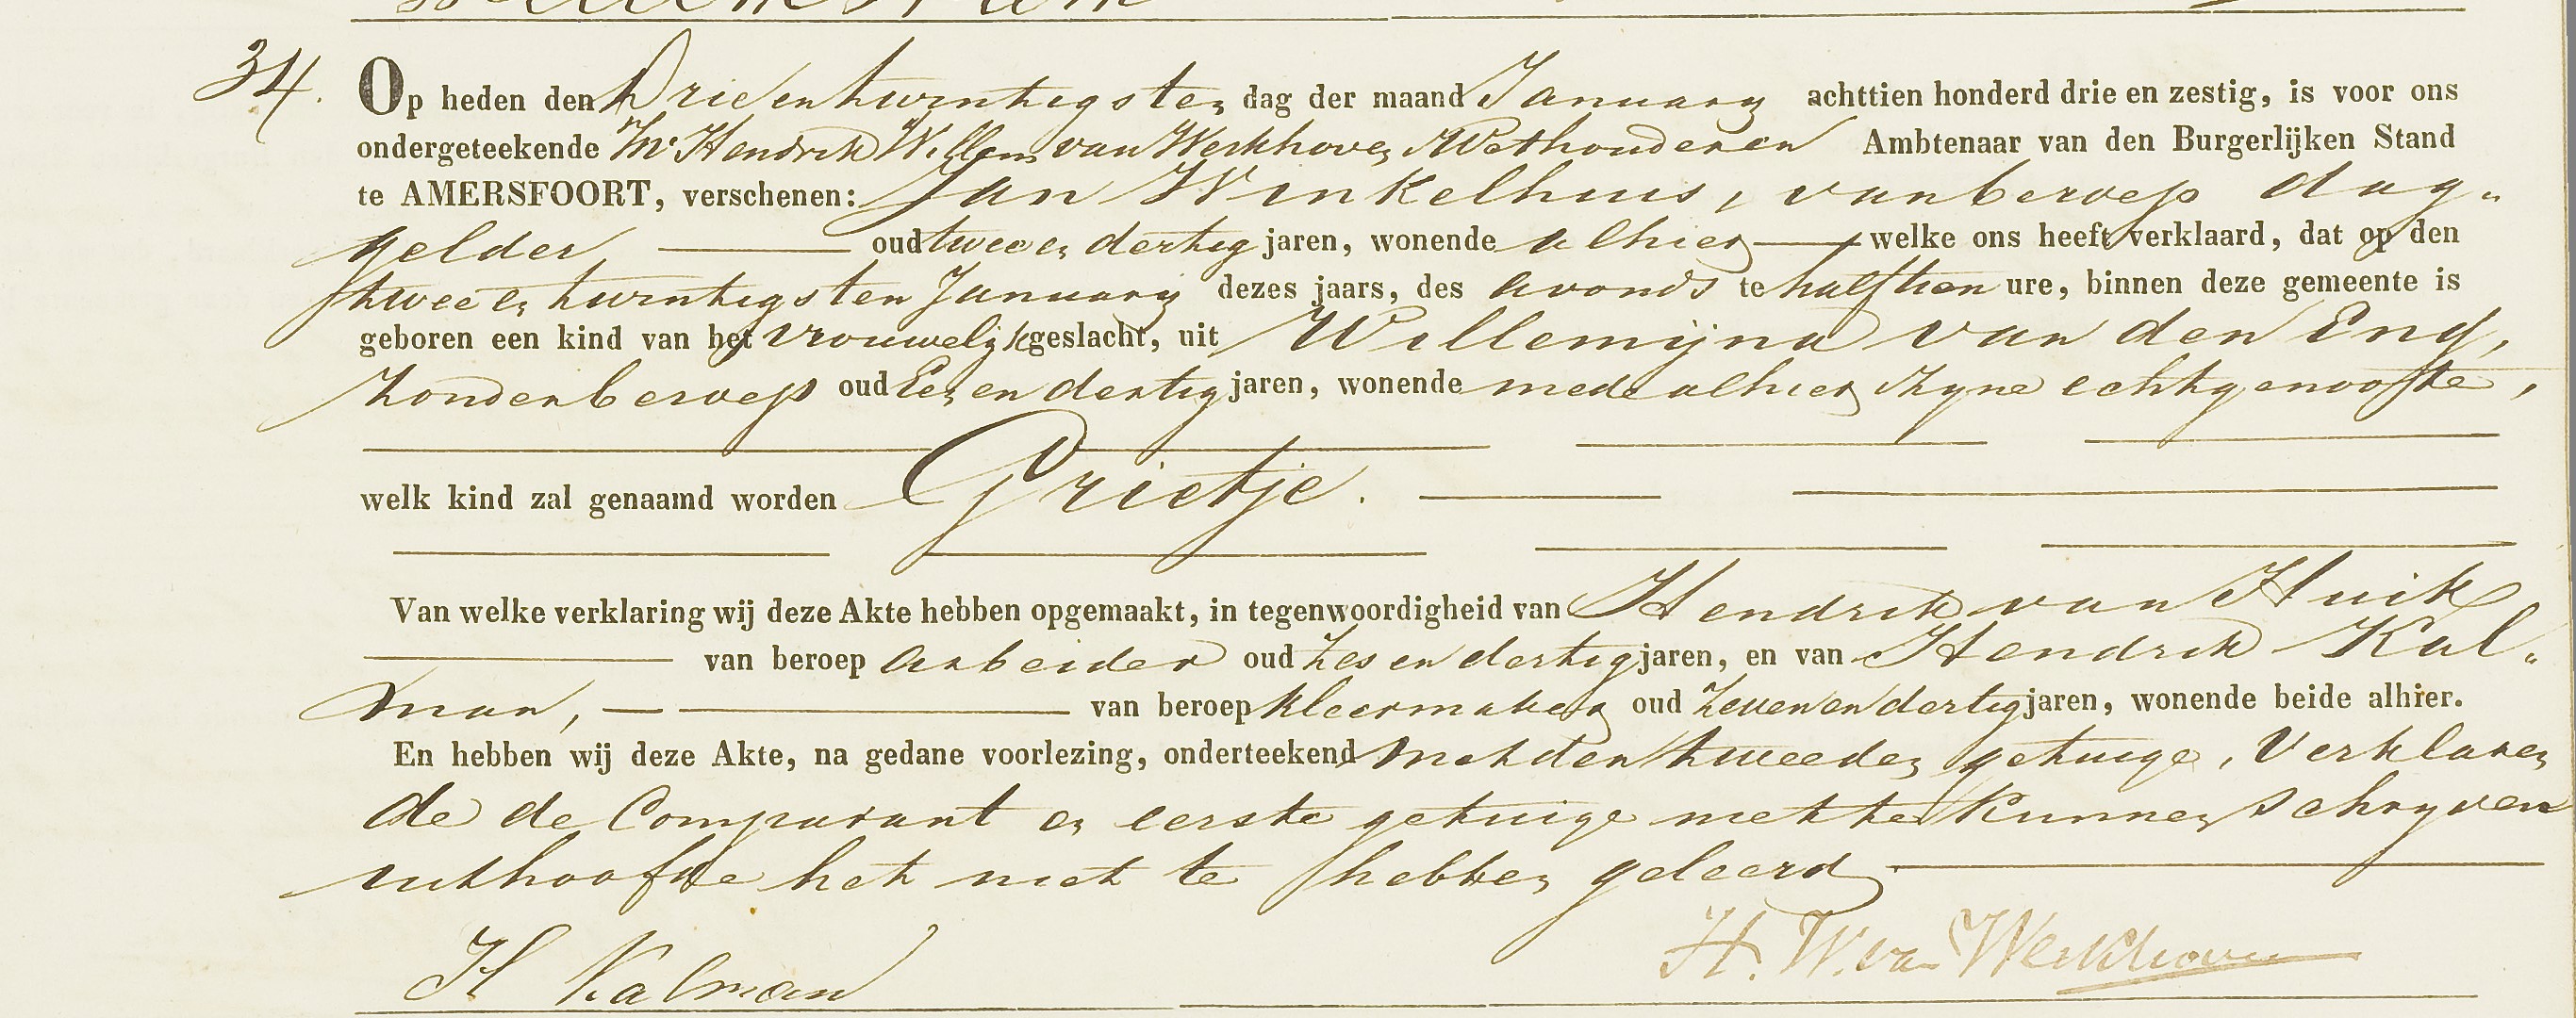 34.
Op heden den Drieentwintigsten dag der maand January achttien honderd drie en zestig, is voor ons
ondergeteekende Mr Hendrik Willem van Werkhoven Wethouder en Ambtenaar van den Burgerlijken Stand
te AMERSFOORT, verschenen: Jan Winkelhuis, van beroep dag„
gelder oud twee en dertig jaren, wonende alhier welke ons heeft verklaard, dat op den
twee en twintigsten January dezes jaars, des avonds te half tien ure, binnen deze gemeente is
geboren een kind van het vrouwelijk geslacht, uit Willemijna van den Eng,
zonder beroep oud Een en dertig jaren, wonende mede alhier zyne echtgenoofte,
welk kind zal genaamd worden Grietje.
Van welke verklaring wij deze Akte hebben opgemaakt, in tegenwoordigheid van Hendrik van Huik
van beroep arbeider oud zes en dertig jaren, en van Hendrik Kal„
man, van beroep kleermaker oud zeven en dertig jaren, wonende beide alhier.
En hebben wij deze Akte, na gedane voorlezing, onderteekend met den tweeden getuige, Verklaren
de de Comparant en eerste getuige niet te kunnen schryven
uithoofde het niet te hebben geleerd
H Kalman H. W. van Werkhoven